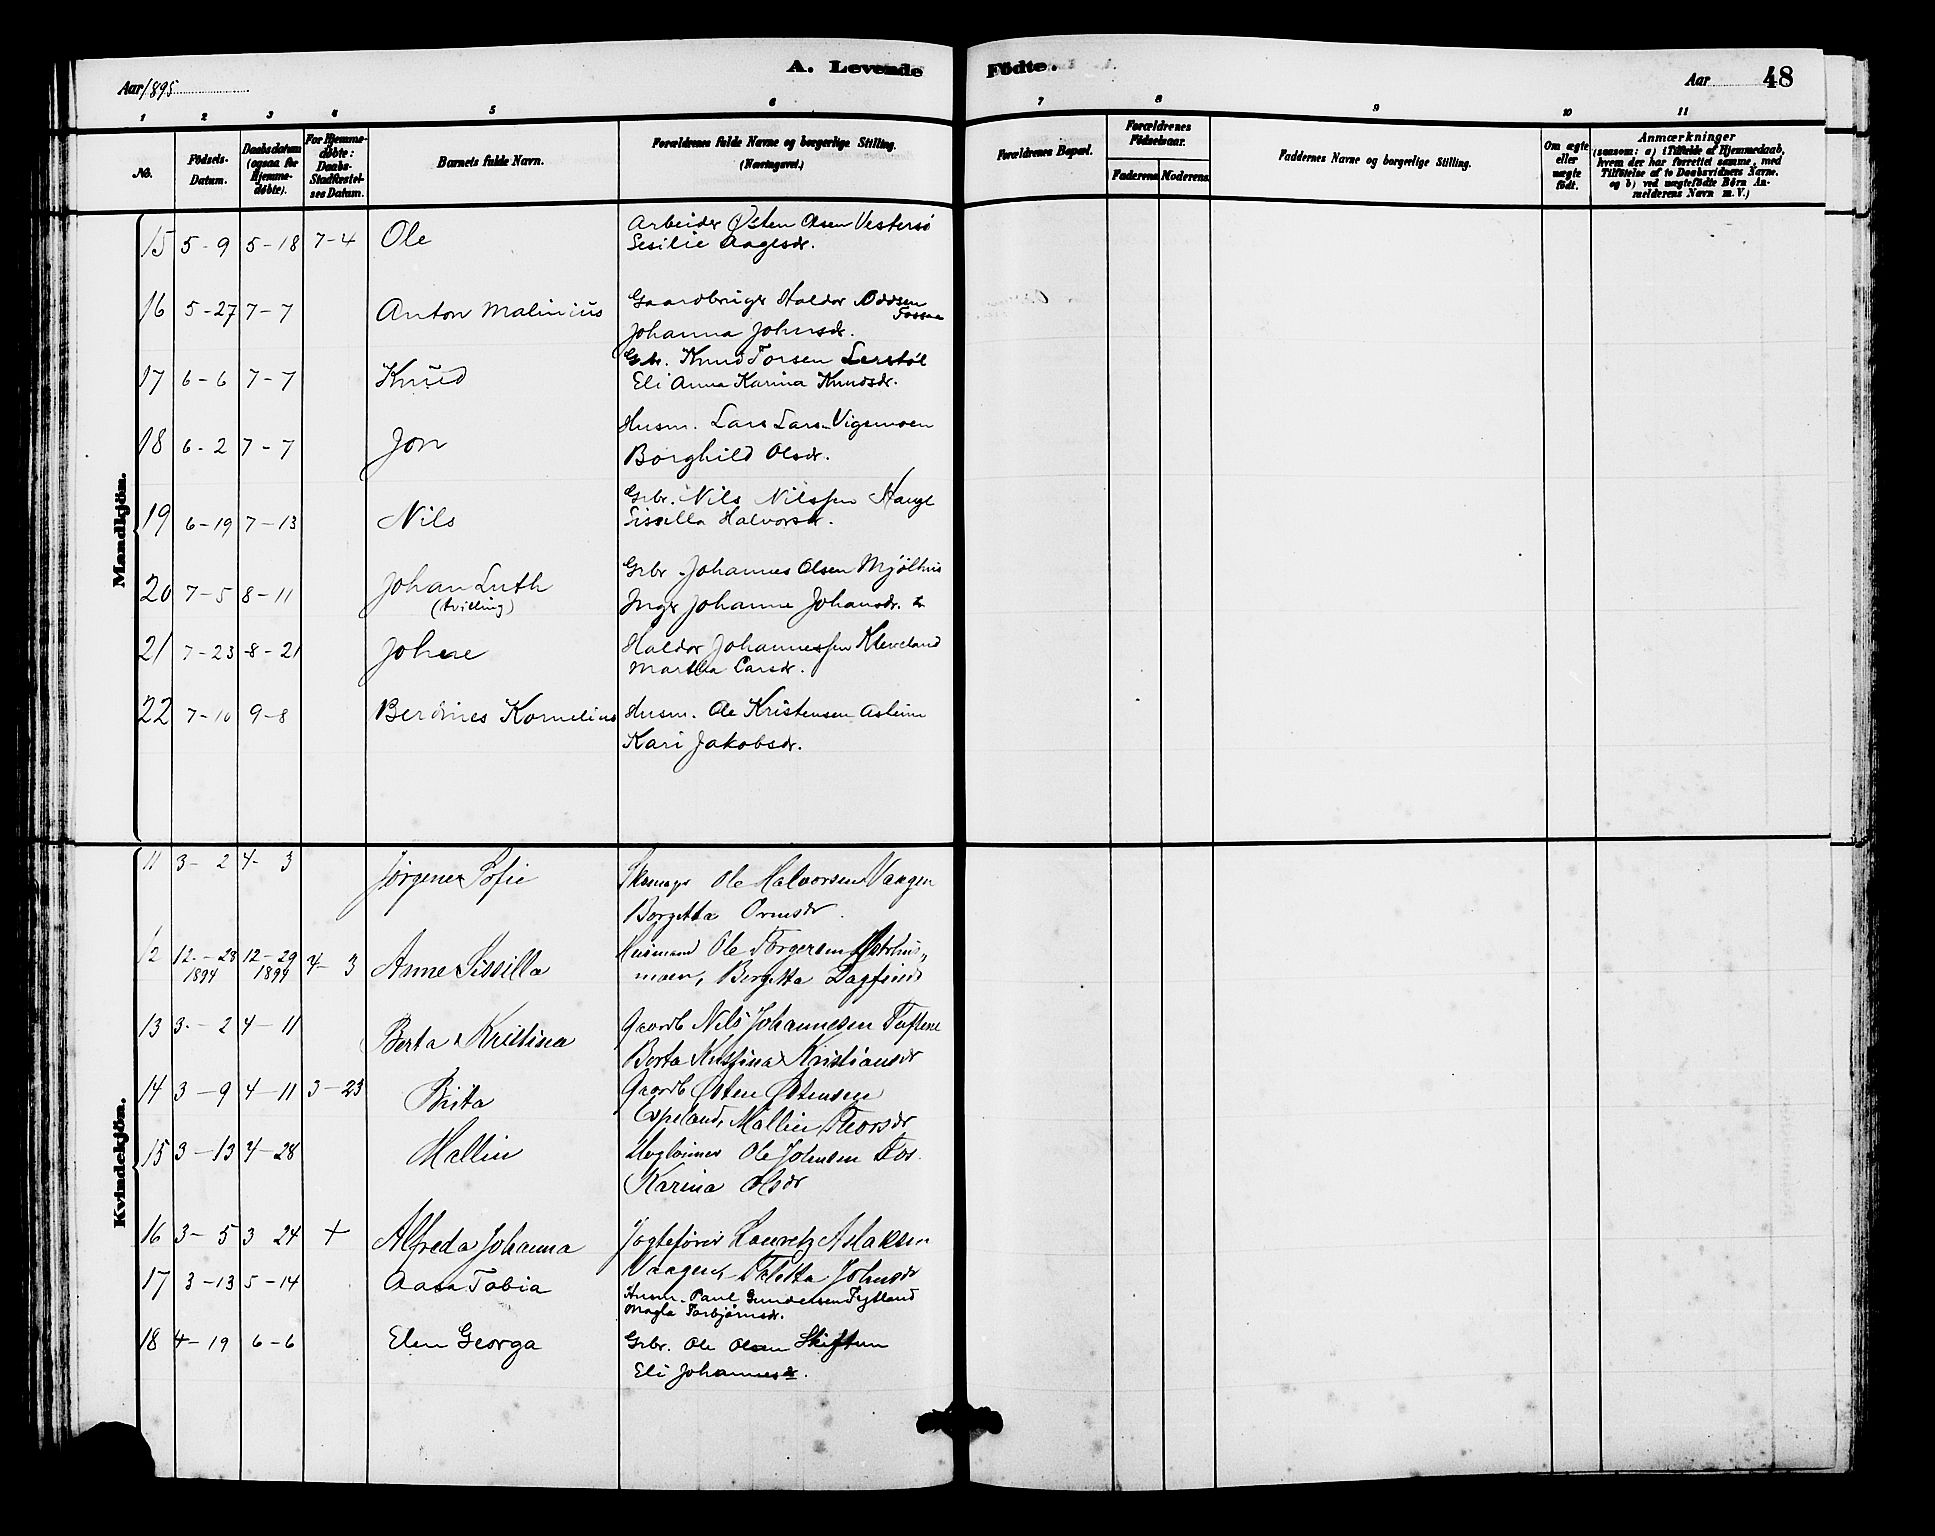 A. Levende Födte.
Aar 1895
Aar 48
1 2 3 4 5 6 7 8 9 10 11
No.
Födsels-Datum.
Daabsdatum (ogsaa for Hjemme-döbte).
For Hjemme-döbte: Daabs-Stadfæstel-ses Datum.
Barnets fulde Navn.
Forældrenes fulde Navne og borgerlige Stilling.
(Næringsvei.)
Forældrenes Bopæl.
Forældrenes Födselsaar.
Faderens Moderens.
Faddernes Navne og borgerlige Stilling.
Om ægte eller uægte födt.
Anmærkninger
(saasom: a) i Tilfælde af Hjemmedaab,
hvem der har forrettet samme, med
Tilföielse af to Daabsvidners Navne.
og b) ved uægtefödte Börn An-
melderens Navn m. V.)
Mandkjön.
15 5-9 5-18 7-4 Ole Arbeider Østen Olsen Vestersø
Sesilie Aagesdr.
16 5-27 7-7 Anton Malinius Gaardbruger Haldor Oddsen
Fossaa
Johanna Johnsdr.
17 6-6 7-7 Knud Gbr. Knud Torsen Lerstøl
Eli Anna Karina Knudsdr.
18 6-2 7-7 Jon Husm. Lars Lars. Vigsmoen
Borghild Olsdr.
19 6-19 7-13 Nils Grbr. Nils Nilssen Hauge
Sissella Halvorsdr.
20 7-5 8-11 Johan Luth Grbr. Johannes Olsen Mjølhus
(tvilling) Inger Johanne Johansdr.
21 7-23 8-21 Johne Haldor Johannessen Kleveland
Martha Larsdr.
22 7-10 9-8 Berdines Kornelius Husm. Ole Kristensen Asheim
Kari Jakobsdr.
Kvindekjön.
11 3-2 4-3 Jørgene Sofie Skomager Ole Halvorsen Vaagen
Borgetta Ormsdr.
12 12-28 1894 12-29 1894 4-3 Anne Sissilla Husmand Ole Torgersen
moen, Bergetta Dagfinsd
13 3-2 4-11 Berta Kristina Gaardb Nils Johannesen Tuftene
Berta Kristina Kristiansdr
14 3-9 4-11 3-23 Brita Gaardb Østen Østensen
Espeland, Mallin Thorsdr
15 3-13 4-28 Mallin Ole Johnsen Fos.
Karina Olsdr
16 3-5 3 24 + Alfreda Johanna Jagtefører Lauretz Aslaksen
Vaagen, Taletta Johnsdr
17 3-13 5-14 Aasa Tobia Husm. Paul Gundersen Fytland
Magla Torbjørnsdr.
18 4-19 6-6 Elen Georga Grbr. Ole Olsen Skiftun
Eli Johannesdr.